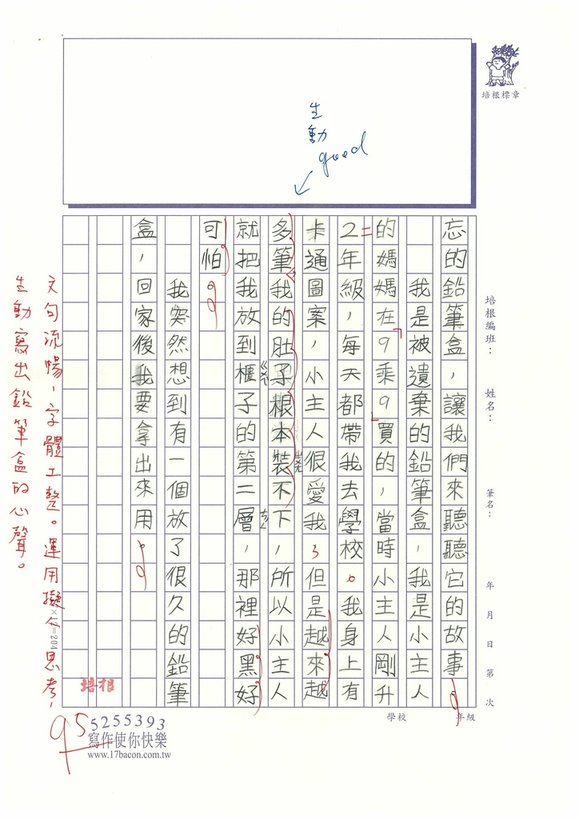 培根標章
生動
good
培根編班：
姓名：
筆名：
年 月 日 第 次
忘的鉛筆盒，讓我們來聽聽它的故事。
我是被遺棄的鉛筆盒，我是小主人
的媽媽在「9乘9」買的，當時小主人剛升
2年級，每天都帶我去學校。我身上有
二
卡通圖案，小主人很愛我，但是越來越
多筆，我的肚子根本裝不下，所以小主人
就把我放到櫃子的第二層，那裡好黑好
可怕。
我突然想到有一個放了很久的鉛筆
盒，回家後我要拿出來用。
文句流暢，字體工整。運用擬人思考，
生動寫出鉛筆盒的心聲。
培根
95
學校
年級
5255393
寫作使你快樂
www.17bacon.com.tw